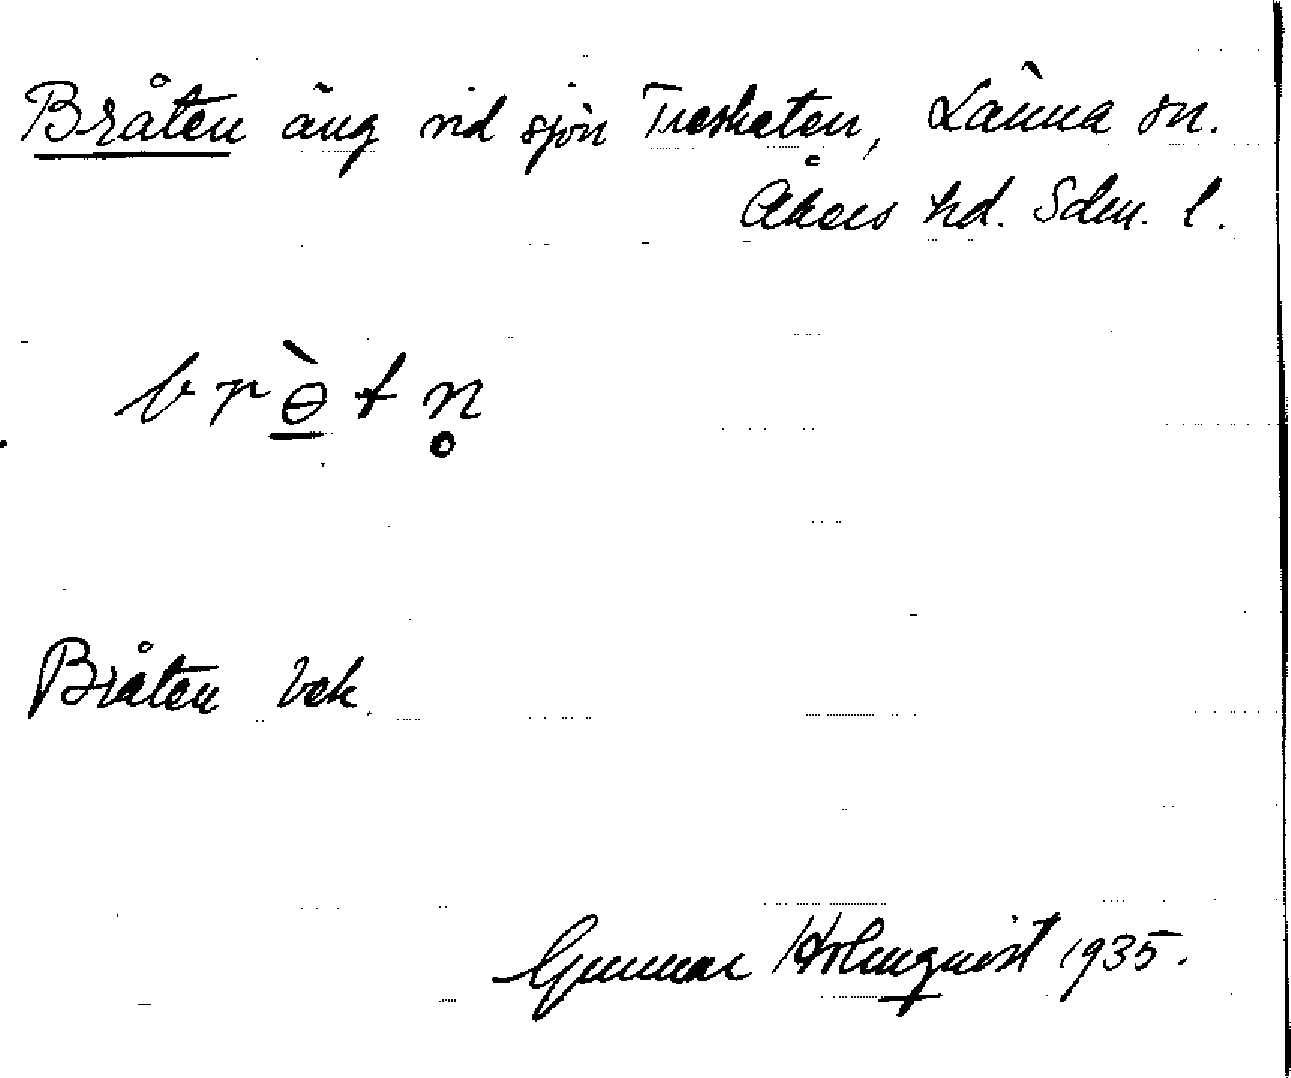 Bråten äng vid sjön Treskaten, Länna sn.
Åkers hd. Sdm. l.
brɵ̀tn̥
Bråten bek.
Gunnar Holmquist 1935.